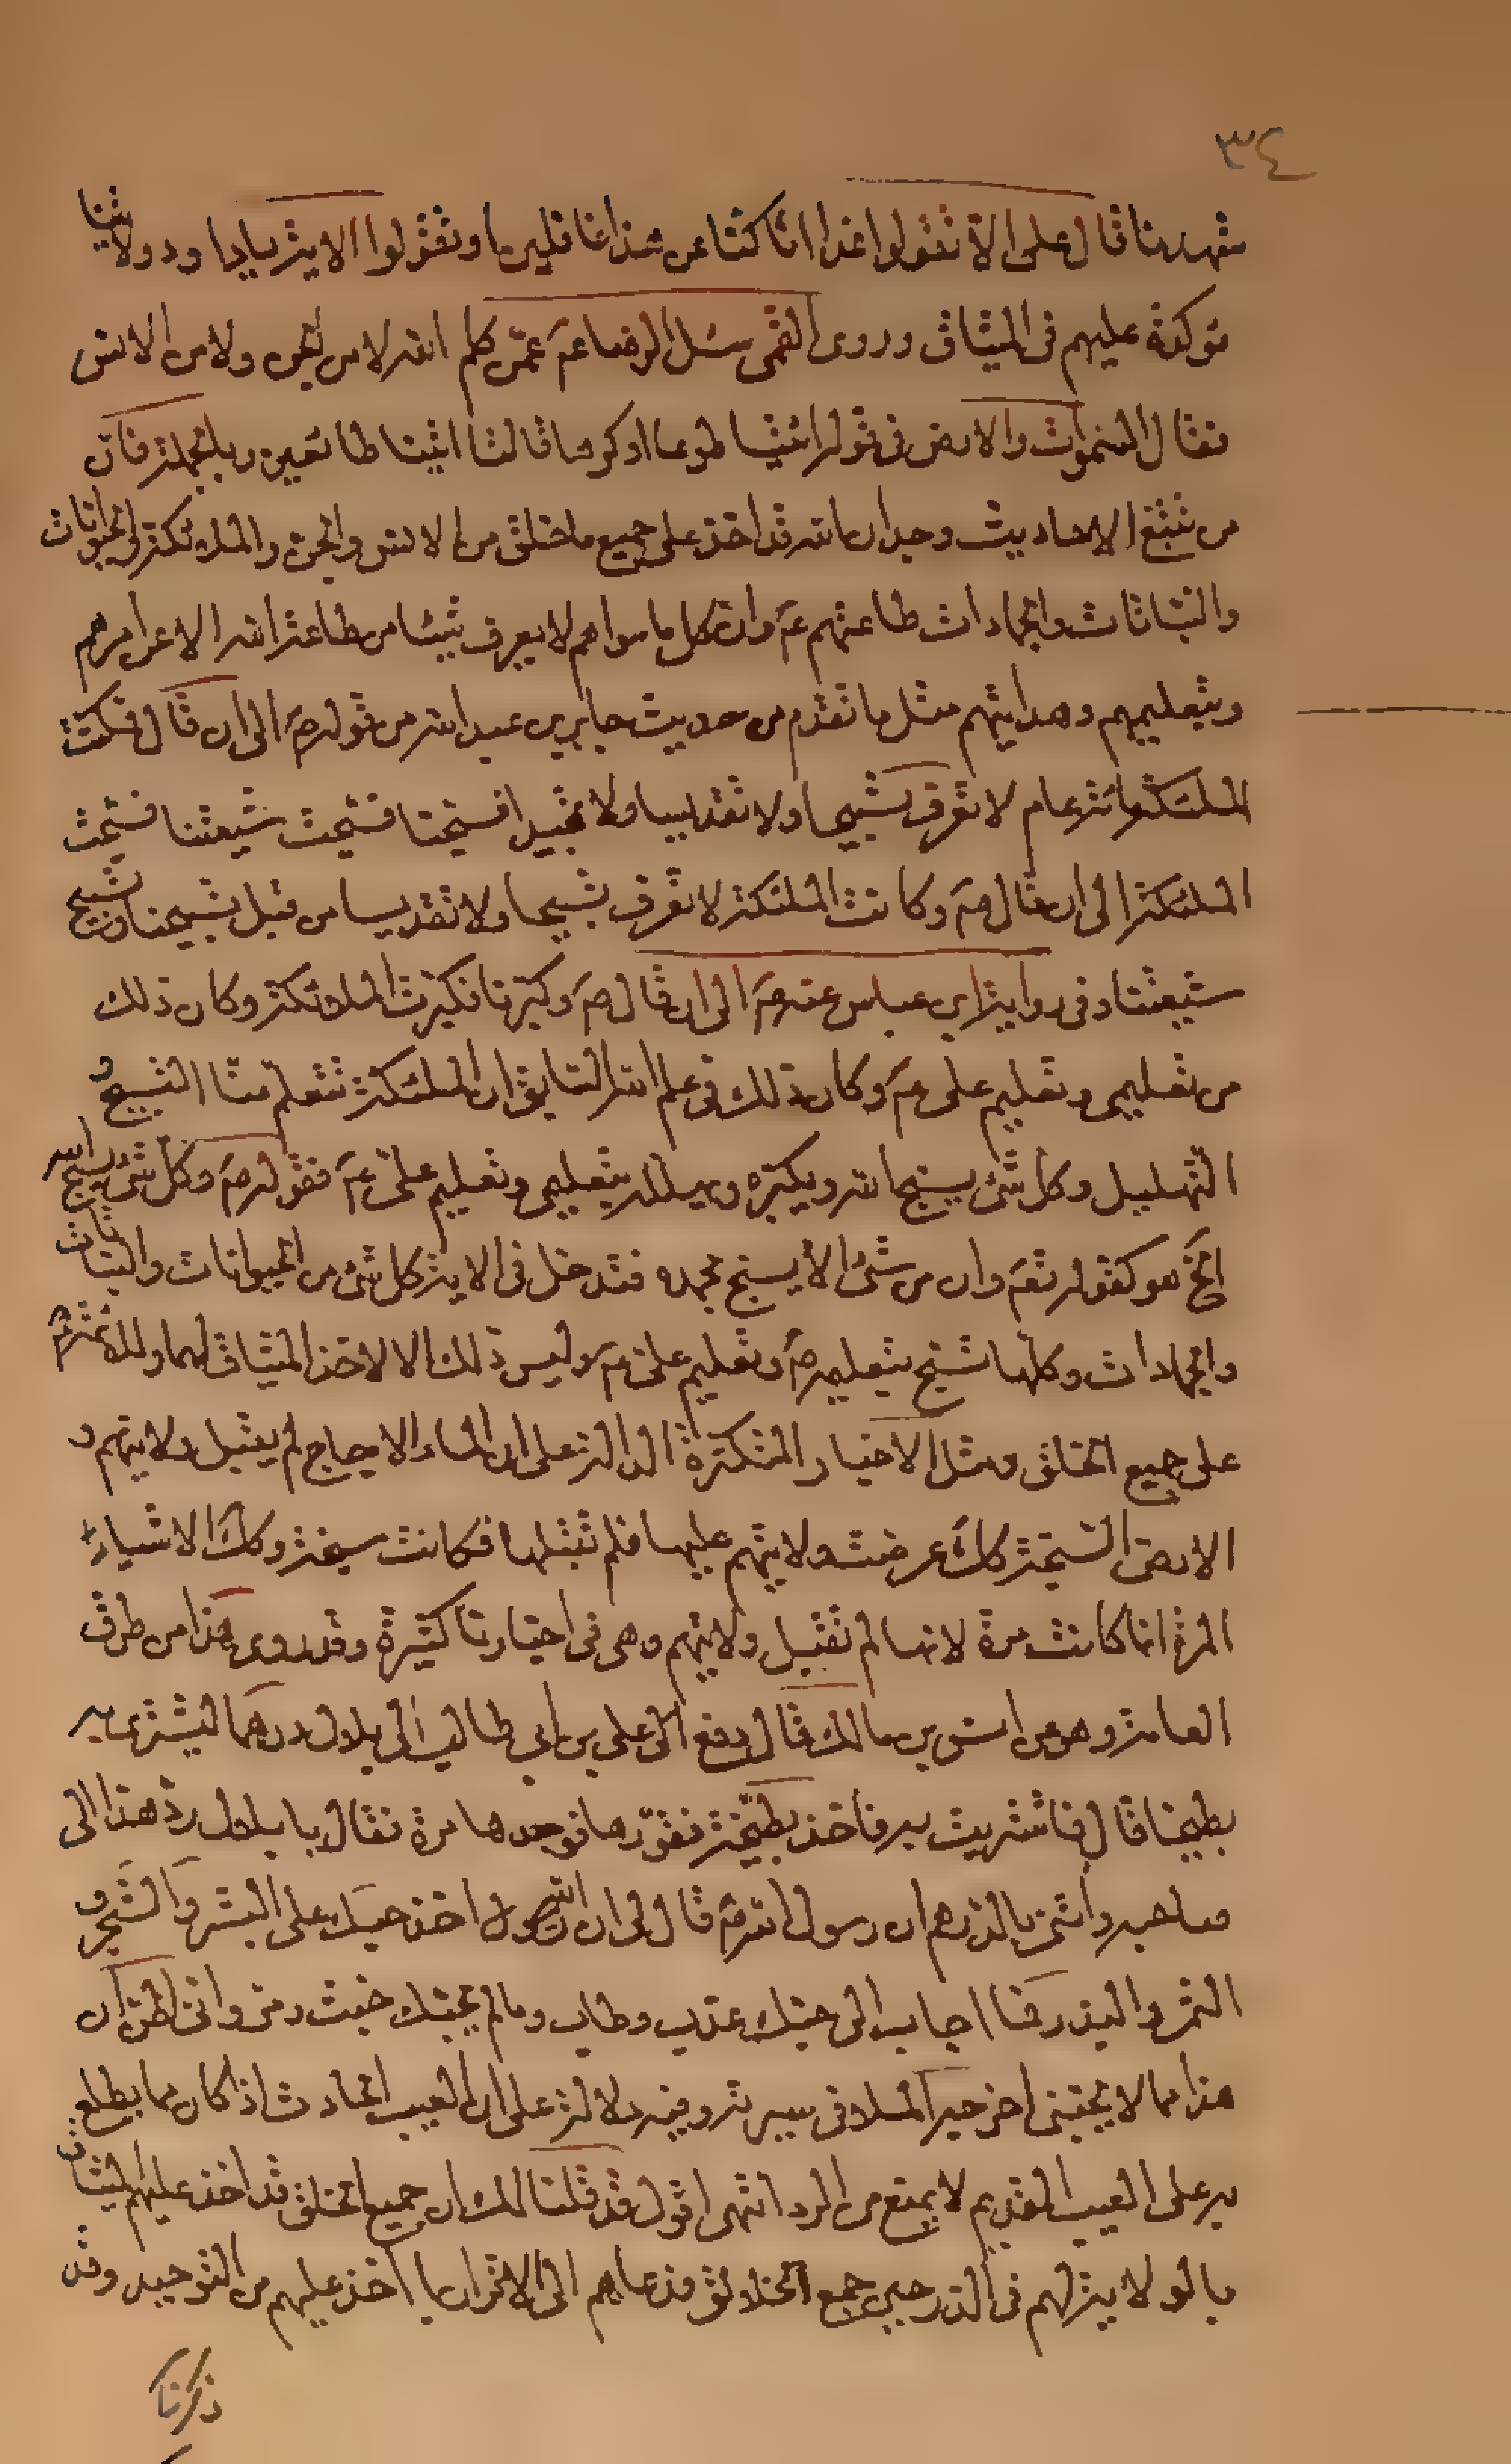 ٣٤
شهدنا قال على الا تقولوا غدا انا كنا عن هذا غافلين او تقولوا الاية يا داود ولايتنا
مؤكدة عليهم فى الميثاق وروى القمى سئل الرضا عم عمن كلم الله لا من الجن ولا من الانس
فقال السموات والارض فى قوله ائتيا طوعا او كرها قالتا اتينا طائعين وبالجملة فان
من تتبع الاحاديث وجد ان الله قد اخذ على جميع ما خلق من الانس والجن والملئكة والحيوانات
والنباتات والجمادات طاعتهم عم وان كل ما سواهم لا يعرف شيئا من طاعة الله الا عن امرهم
وتعليمهم وهدايتهم مثل ما تقدم من حديث جابر بن عبد الله من قوله صم الى ان قال فمكثت
الملئكة مائة عام لا تعرف تسبيحا ولا تقديسا ولا تمجيدا فسبحنا فسبحت شيعتنا فسبحت
الملئكة الى ان قال صم وكانت الملئكة لا تعرف تسبيحا ولا تقديسا من قبل تسبيحنا وتسبيح
شيعتنا وفى رواية ابن عباس عنه صم الى ان قال صم وكبرنا فكبرت الملائكة وكان ذلك
من تعليمى وتعليم على عم وكان ذلك فى علم الله السابق ان الملئكة تتعلم منا التسبيح و
التهليل وكل شئ يسبح الله ويكبره ويهلله بتعليمى وتعليم على عم فقوله صم وكل شئ يسبح الله
الخ هو كقوله تعم وان من شئ الا يسبح بحمده فقد دخل فى الاية كل شئ من الحيوانات والنباتات
والجمادات وكلها تسبح بتعليمه صم وتعليم على عم وليس ذلك الا لاخذ الميثاق لهما وللائمة عم
على جميع الخلق ومثل الاخبار المتكثرة الدالة على ان الماء الاجاج لم يقبل ولايتهم و
الارض السبخة كك عرضت ولايتهم عليها فلم تقبلها فكانت سبخة وكك الاشياء
المرة انما كانت مرة لانها لم تقبل ولايتهم وهى فى اخبارنا كثيرة وقد روى هذا من طرق
العامة وهو عن انس بن مالك قال دفع الى على بن ابى طالب الى بلال درهما ليشترى به
بطيخا قال فاشتريت به فاخذ بطيخة فقورها فوجدها مرة فقال يا بلال رد هذا الى
صاحبه وائتنى بالدرهم ان رسول الله صم قال لى ان الله اخذ حبك على البشر والشجر و
الثمر والبذر فما اجاب الى حبك عذب وطاب وما لم يجبك خبث ومر وانى اظن ان
هذا مما لا يحبنى اخرجه الملا فى سيرته وفيه دلالة على ان العيب الحادث اذا كان مما يطلع
به على العيب القديم لا يمنع من الرد انتهى اقول قد قلنا لك ان جميع الخلق قد اخذ عليهم الميثاق
بالولاية لهم فى الذر حين جمع الخلائق فدعاهم الى الاقرار بما اخذ عليهم من التوحيد وقد
ذكرنا